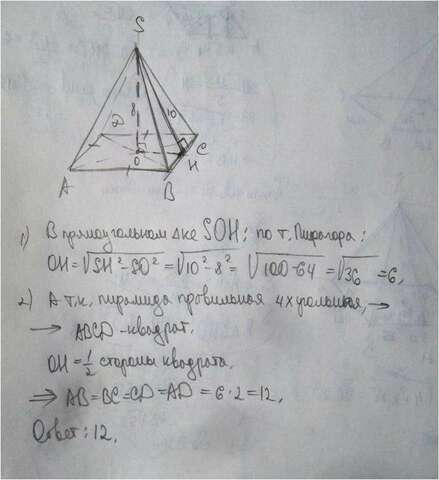 S
8
10
D
C
H
A
O
B
1) В прямоугольном △ке SOH; по т. Пифагора:
OH=√SH²-SO² = √10²-8² = √100-64 = √36 = 6,
2) А т.к. пирамида правильная 4х угольная, →
→ ABCD - квадрат.
OH = 1/2 стороны квадрата.
⇒ AB=BC=CD=AD = 6·2=12,
Ответ: 12.